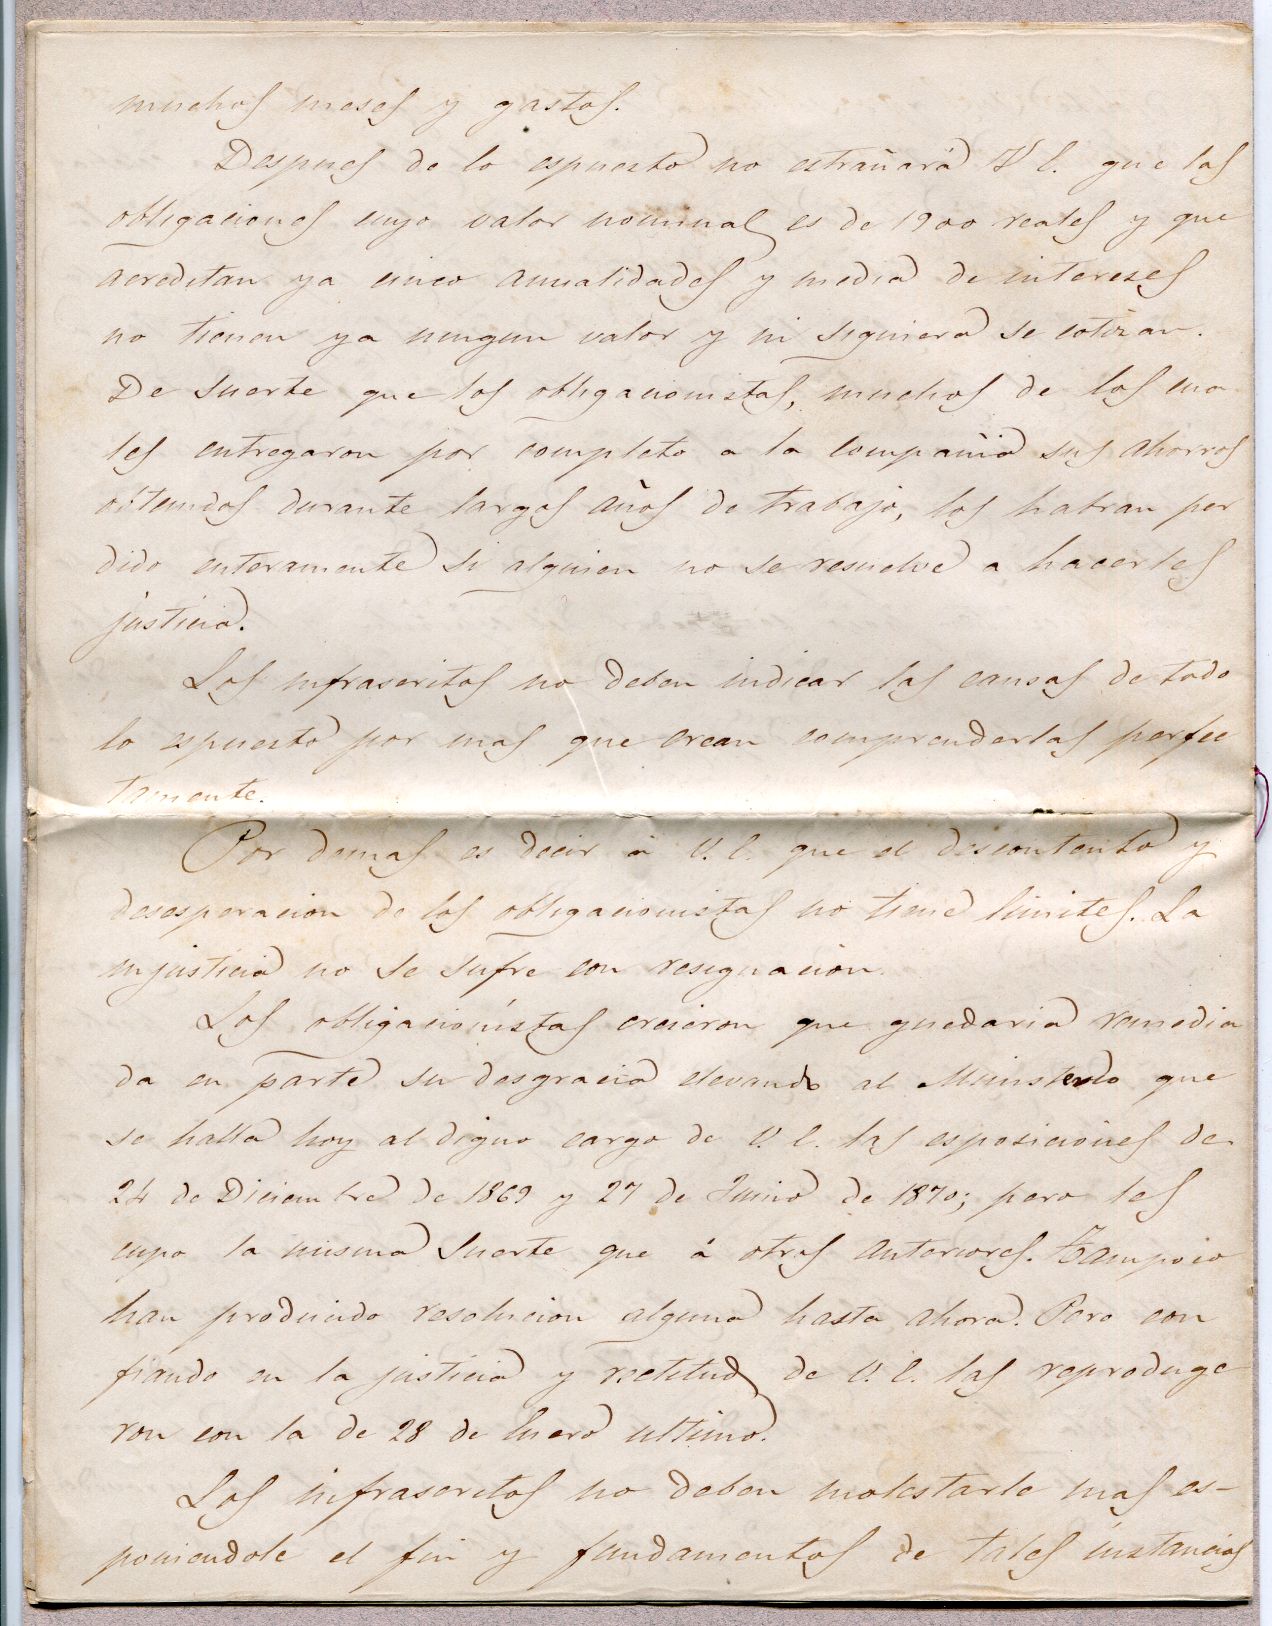 muchos meses y gastos.
Despues de lo espuesto no estrañará V E. que las
obligaciones cuyo valor nominal es de 1900 reales y que
acreditan ya cinco anualidades y media de intereses
no tienen ya ningun valor y ni siquiera se cotizan.
De suerte que los obligacionistas, muchos de los cua
les entregaron por completo a la compañia sus ahorros
obtenidos durante largos años de trabajo, los habran per
dido enteramente si alguien no se resuelve a hacerles
justicia.
Los infrascritos no deben indicar las causas de todo
lo espuesto por mas que crean comprenderlas perfec
tamente.
Por demas es decir á V. E. que el descontento y
desesperacion de los obligacionistas no tiene limites. La
injusticia no se sufre con resignacion.
Los obligacionistas creieron que quedaria remedia
da en parte su desgracia elevando al Ministerio que
se halla hoy al digno cargo de V. E. las esposiciones de
24 de Diciembre de 1869 y 27 de Junio de 1870; pero les
cupo la misma suerte que á otras anteriores. Tampoco
han producido resolucion alguna hasta ahora. Pero con
fiando en la justicia y rectitud de V. E. las reproduge
ron con la de 28 de Enero ultimo.
Los infrascritos no deben molestarle mas es-
poniendole el fin y fundamentos de tales instancias